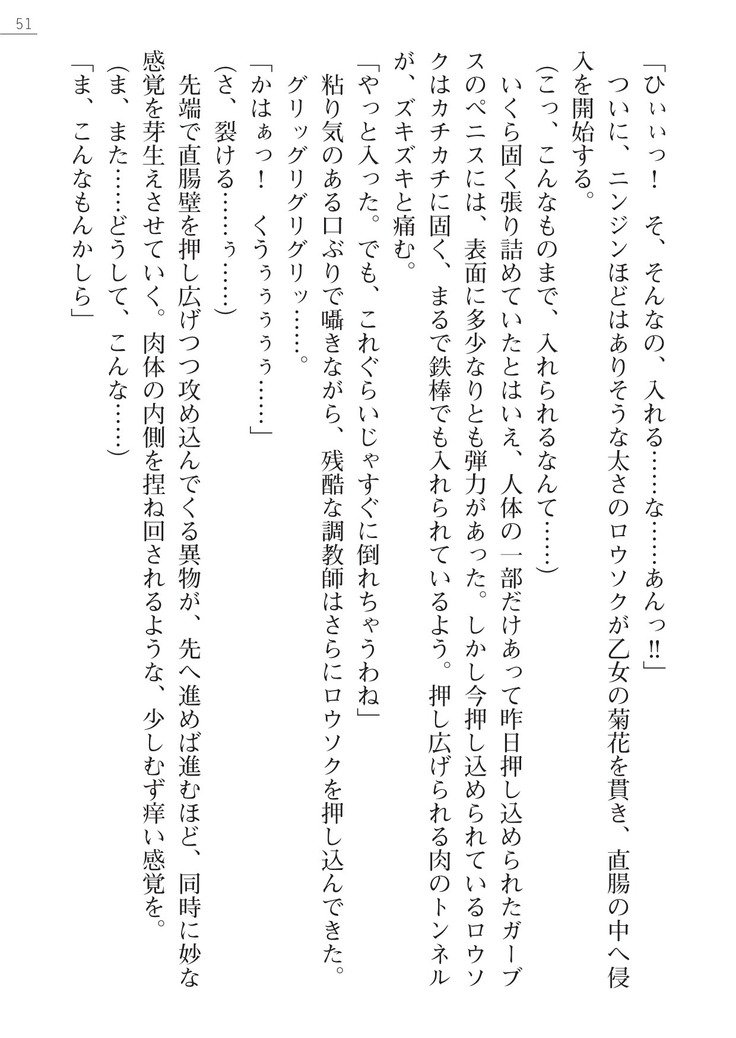 51
「ひぃぃっ！　そ、そんなの、入れる……な……あんっ!!」
　ついに、ニンジンほどはありそうな太さのロウソクが乙女の菊花を貫き、直腸の中へ侵
入を開始する。
（こっ、こんなものまで、入れられるなんて……）
　いくら固く張り詰めていたとはいえ、人体の一部だけあって昨日押し込められたガーブ
スのペニスには、表面に多少なりとも弾力があった。しかし今押し込められているロウソ
クはカチカチに固く、まるで鉄棒でも入れられているよう。押し広げられる肉のトンネル
が、ズキズキと痛む。
「やっと入った。でも、これぐらいじゃすぐに倒れちゃうわね」
　粘り気のある口ぶりで囁きながら、残酷な調教師はさらにロウソクを押し込んできた。
　グリッグリグリグリッ……。
「かはぁっ！　くうぅぅぅぅ……」
（さ、裂ける……ぅ……）
　先端で直腸壁を押し広げつつ攻め込んでくる異物が、先へ進めば進むほど、同時に妙な
感覚を芽生えさせていく。肉体の内側を捏ね回されるような、少しむず痒い感覚を。
（ま、また……どうして、こんな……）
「ま、こんなもんかしら」